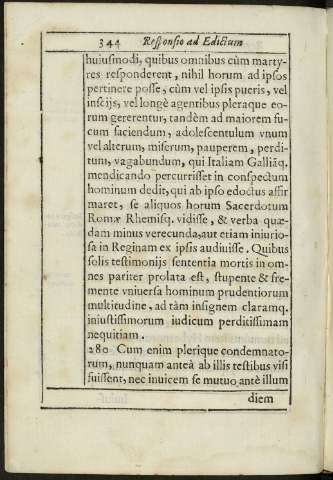 344 Responsio ad Edictum
huiusmodi, quibus omnibus cùm marty-
res responderent, nihil horum ad ipsos
pertinere posse, cùm vel ipsis pueris, vel
inscijs, vel longè agentibus pleraque eo-
rum gererentur, tandèm ad maiorem fu-
cum faciendum, adolescentulum vnum
vel alterum, miserum, pauperem, perdi-
tum, vagabundum, qui Italiam Galliāq.
mendicando percurrisset in conspectum
hominum dedit, qui ab ipso edoctus affir
maret, se aliquos horum Sacerdotum
Romæ Rhemisq. vidisse, & verba quæ-
dam minus verecunda, aut etiam iniurio-
sa in Reginam ex ipsis audiuisse. Quibus
solis testimonijs sententia mortis in om-
nes pariter prolata est, stupente & fre-
mente vniuersa hominum prudentiorum
multitudine, ad tàm insignem claramq.
iniustissimorum iudicum perditissimam
nequitiam.
280 Cum enim plerique condemnato-
rum, nunquam anteà ab illis testibus visi
fuissent, nec inuicem se mutuo antè illum
diem